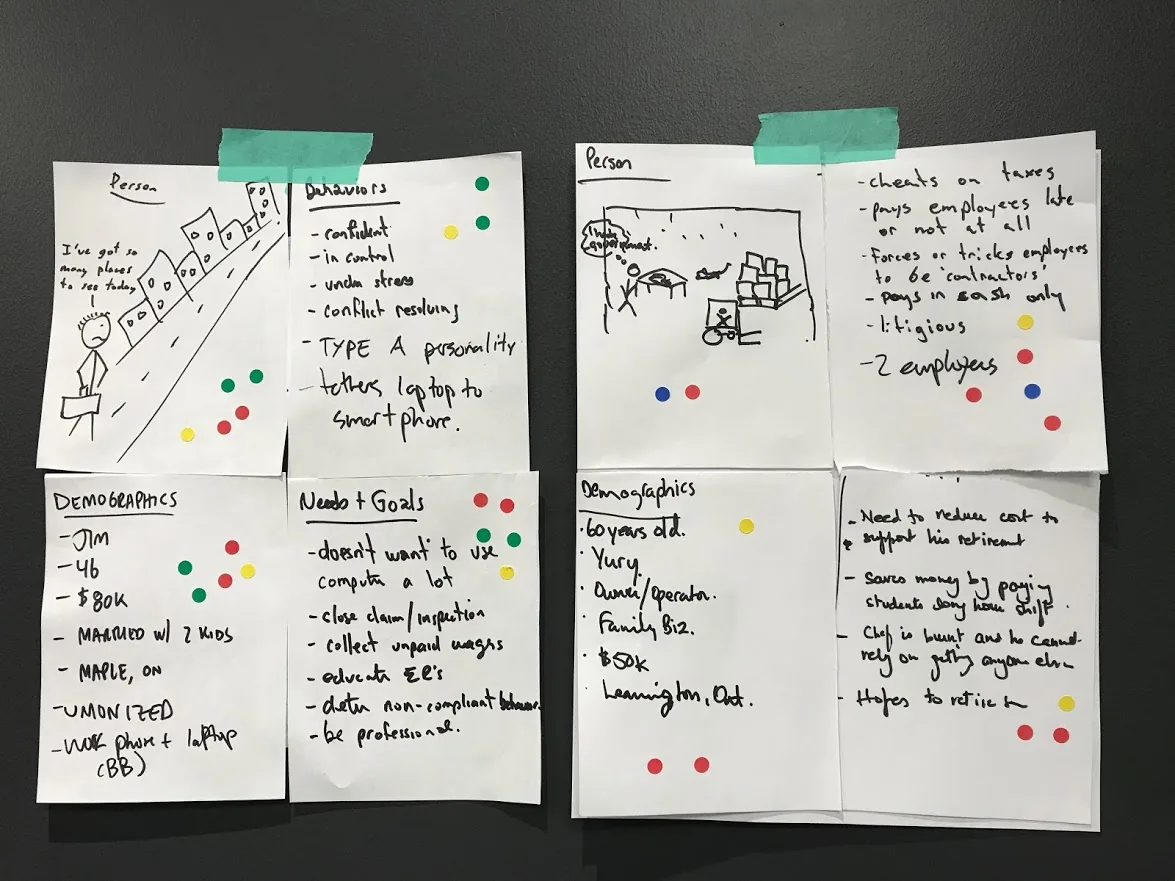 Person
I've got so
many places
to see today
Behaviors
- confident
- in control
- under stress
- conflict resolving
- TYPE A personality
- tethers laptop to
smartphone.
DEMOGRAPHICS
- JIM
- 46
- $80K
- MARRIED W/ 2 KIDS
- MAPLE, ON
- UNIONIZED
- WORK phone + laptop
(BB)
Needs + Goals
- doesn't want to use
computer a lot
- close claim/inspection
- collect unpaid wages
- educate ER's
- deter non-compliant behavior.
- be professional.
Person
I hate
government.
- cheats on taxes
- pays employees late
or not at all
- Forces or tricks employees
to be 'contractors'
- pays in cash only
- litigious
- 2 employees
Demographics
· 60 years old.
· Yury.
· Owner/Operator.
· Family Biz.
· $50K
· Leamington, Ont.
- Need to reduce cost to
support his retirement
- Saves money by paying
students long hour shift.
- Chef is burnt and he cannot
rely on getting anyone else
- Hopes to retire in